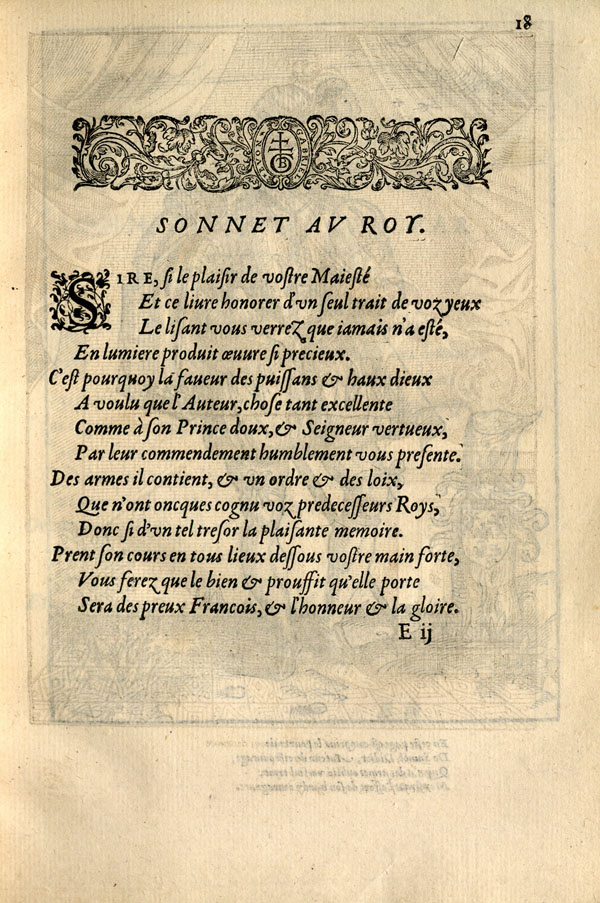 18
SONNET AV ROY.
SIRE, ſi le plaiſir de voſtre Maieſté
Et ce liure honorer d'vn ſeul trait de voz yeux
Le liſant vous verrez que iamais n'a eſté,
En lumiere produit œuure ſi precieux.
C'eſt pourquoy la faueur des puiſſans & haux dieux
A voulu que l'Auteur, choſe tant excellente
Comme à ſon Prince doux, & Seigneur vertueux,
Par leur commendement humblement vous preſente.
Des armes il contient, & vn ordre & des loix,
Que n'ont oncques cognu voz predeceſſeurs Roys,
Donc ſi d'vn tel treſor la plaiſante memoire.
Prent ſon cours en tous lieux deſſous voſtre main forte,
Vous ferez que le bien & prouffit qu'elle porte
Sera des preux Francois, & l'honneur & la gloire.
E ij